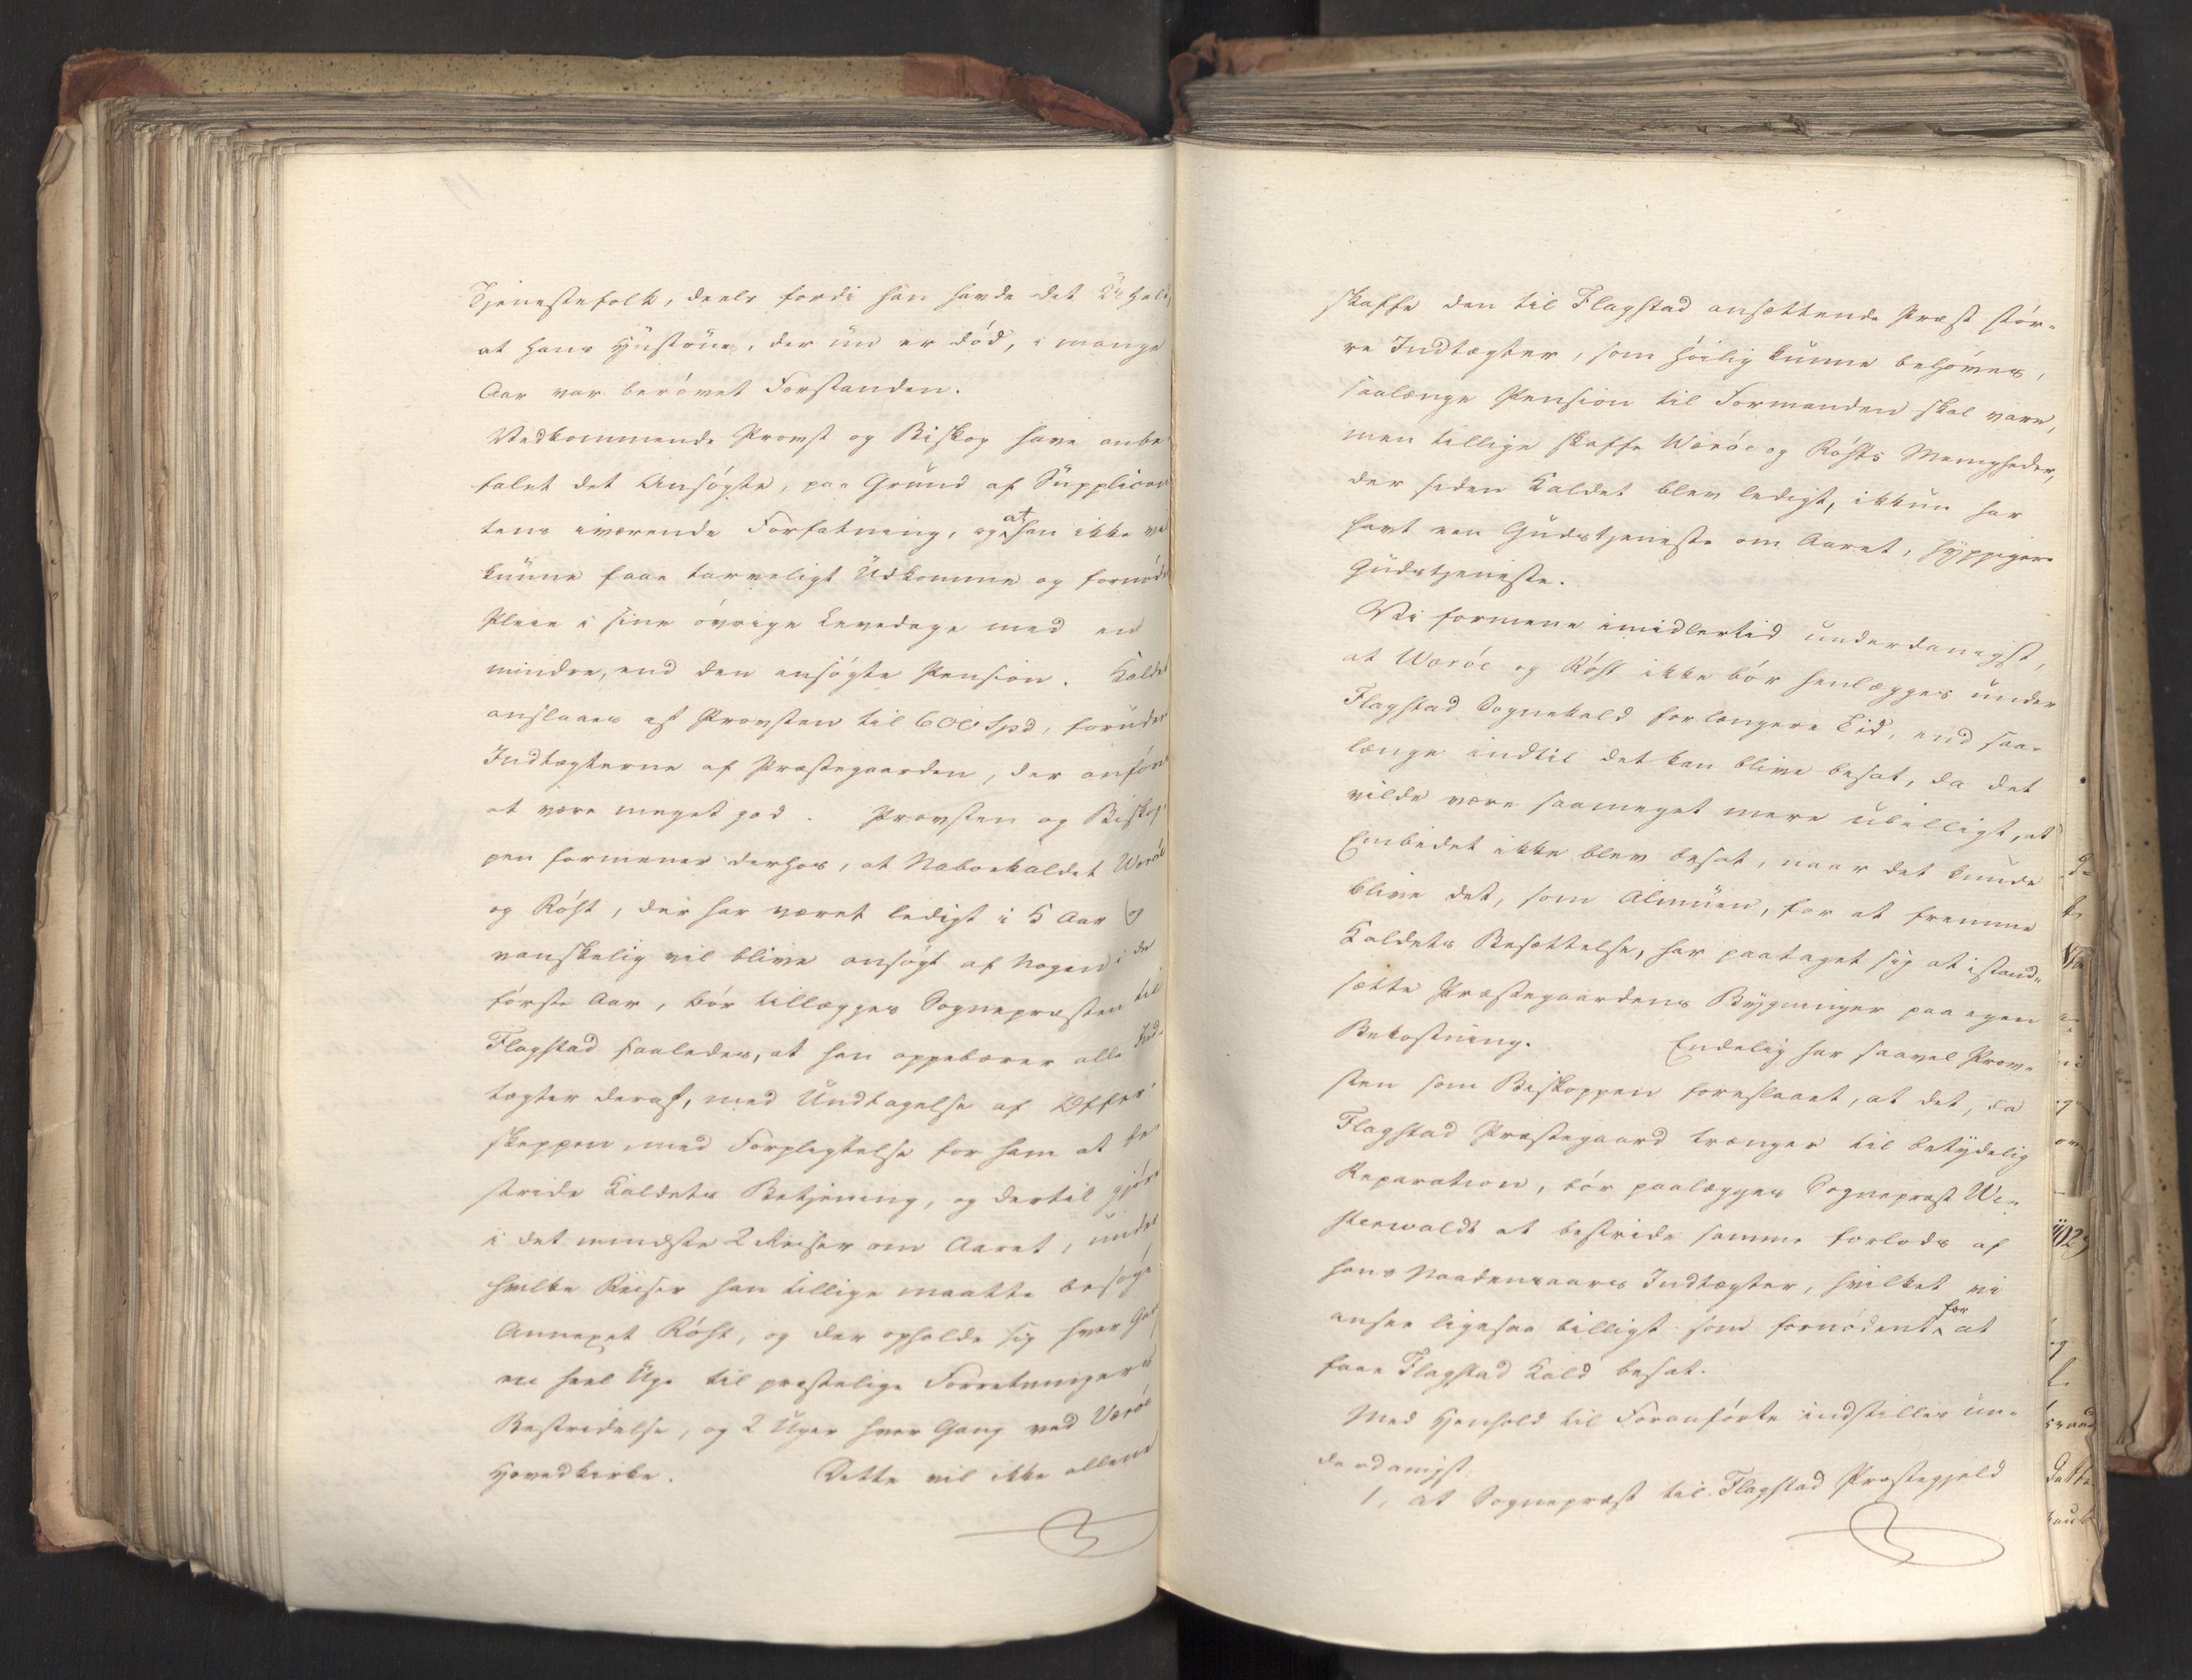 Tjenestefolk, deels fordi han havde det Uheld,
at Hans Hustrue, der nu er død, i mange
Aar var berøvet Forstanden.
Vedkommende Provst og Biskop have anbe
falet det Ansøgte, paa Grund af Supplican
tens iværende Forfatning, og at han ikke vil
kunne faae tarveligt Udkomme og fornøde
Pleie i sine øvrige Levedage med en
mindre, end den ansøgte Pension. Kaldet
anslaaes af Provsten til 600 Spd, foruden
Indtægterne af Præstegaarden, der anføres
at være meget god. Provsten og Biskop
pen formener derhos, at Nabokaldet Værøe
og Røst, der har været ledigt i 5 Aar og
vanskelig vil blive ansøgt af Nogen i de
første Aar, bør tillægges Sognepræsten til
Flagstad saaledes, at han oppebærer alle Ind-
tægter deraf, med Undtagelse af Offer
skeppen, med Forpligtelse for ham at be
stride Kaldets Betjening, og dertil gjøre
i det mindste 2 Reiser om Aaret, under
hvilke Reiser han tillige maatte besøge
Annexet Røst, og der opholde sig hver Gang
en heel Uge til præstelige Forretningers
Bestridelse, og 2 Uger hver Gang ved Værøe
Hovedkirke. Dette vil ikke allene
skaffe den til Flagstad ansættende Præst stør-
re Indtægter, som høilig kunne behøves,
saalænge Pension til Formanden skal vare,
men tillige skaffe Værøe og Røsts Menigheder,
der siden Kaldet blev ledigt, ikkun har
havt een Gudstjeneste om Aaret, hyppigere
Gudstjeneste.
Vi formene imidlertid underdanigst,
at Værøe og Røst ikke bør henlægges under
Flagstad Sognekald for længere Tid, end saa-
længe indtil det kan blive besat, da det
vilde være saameget mere ubilligt, at
Embedet ikke blev besat, naar det kunde
blive det, som Almuen, for at fremme
Kaldets Besættelse, har paataget sig at istand-
sætte Præstegaardens Bygninger paa egen
Bekostning. Endelig har saavel Prov-
sten som Biskoppen foreslaaet, at det, da
Flagstad Præstegaard trænger til betydelig
Reparation, bør paalægges Sognepræst We-
sterwaldt at bestride samme forlods af
hans Naadensaars Indtægter, hvilket vi
ansee ligesaa billigt som fornødent for at
faae Flagstad Kald besat.
Med Henhold til Foranførte indstilles un-
derdanigst
1, at Sognepræst til Flagstad Præstegjeld